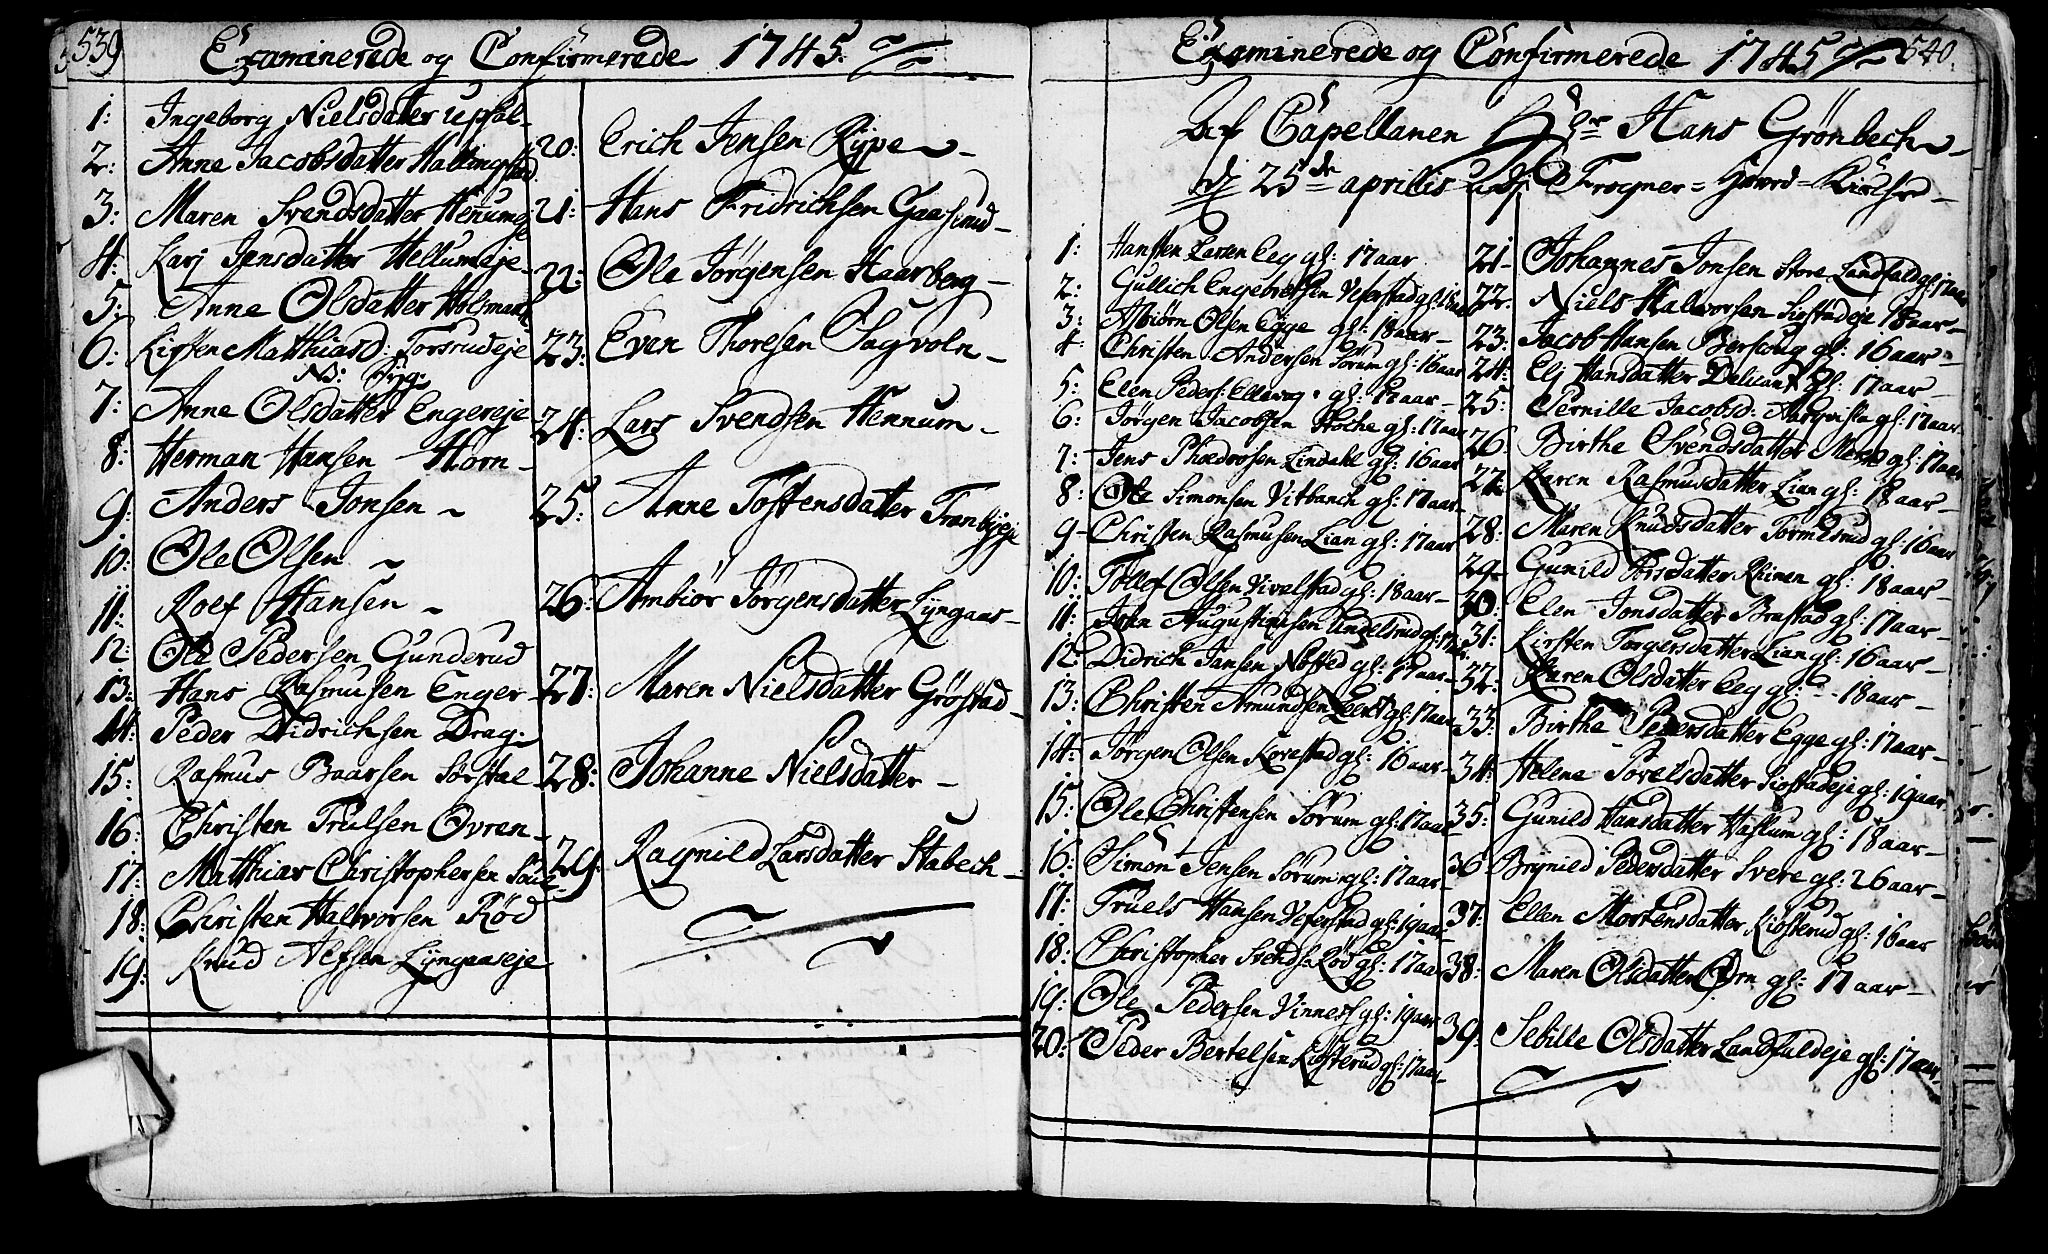 539
Examinerede og Confirmerede 1745.
1: Ingeborg Nielsdatter upsal
2: Anne Jacobsdatter Hallingstad
3: Maren Svendsdatter Henumeje
4: Karj Jensdatter Hellumeje
5: Anne Olsdatter Holsmark
6: Kirsten Matthiasd: Torsrudeje
NB: Syg.
7: Anne Olsdatter Engereje
8: Herman Hansen Horn
9: Anders Jonsen
10: Ole Olsen
11: Roef Hansen
12: Ole Pedersen Gunderud
13: Hans Rasmusen Enger
14: Peder Didrichsen Drag.
15: Rasmus Baarsen Sørstal
16: Christen Trulsen Ovren
17: Matthias Christophersen
18: Christen Halvorsen Rød
19: Knud Alfsen Lyngaaseje
20: Erich Jensen Rype
21: Hans Fridrichsen Gaasrud
22: Ole Jørgensen Haarberg
23: Even Thoresen Sagvoln
24: Lars Svendsen Hennum
25: Anne Tostensdatter Tranbyeje
26: Ambiør Jørgensdatter Lyngaas
27: Maren Nielsdatter Gröstad
28: Johanne Nielsdatter
29: Ragnild Larsdatter Stabech
540.
Examinerede og Confirmerede 1745
Af Capellanen Hr Hans Grönbech
d 25de aprilis udj Frogner = Hoved = Kirke
1: Hansten Larsen Eeg gl: 17 aar
2: Gullich Engebretsen Veserstad gl:
3: Asbiørn Olsen Egge gl: 18 aar
4 Christen Andersen Sørum gl: 16 aar
5: Elen Peders: Ellevog gl: 17 aar
6: Jørgen Jacobsen Holte gl: 17 aar
7: Jens Phoedrosen Lindahl gl: 16 aar
8: Ole Simonsen Vitbanch gl: 17 aar
9 Christen Rasmusen Lian gl: 17 aar
10: Tollef Olsen Vivelstad gl: 18 aar
11: John Augustinusen Undelsrud gl: 17 aar
12: Didrich Jansen Nøsted gl: 17 aar
13: Christen Amundsen Leerst gl: 17 aar
14: Jørgen Olsen Kovestad gl: 16 aar
15: Ole Christensen Sørum gl: 17 aar
16: Simon Jensen Sørum gl: 17 aar
17: Truels Hansen Veserstad gl: 19 aar
18: Christopher Svends: Rød gl: 17 aar
19: Ole Pedersen Vinness gl: 19 aar
20: Peder Bertelsen Kiosterud gl: 17 aar
21 Johannes Jonsen Store Landfald gl: 17 aar
22: Niels Halvorsen Siøstadeje 18 aar
23: Jacob Hansen Berskoug gl: 16 aar
24: Elj Hansdatter gl: 17 aar
25: Pernille Jacobsd: gl: 17 aar
26: Birthe Svendsdatter gl: 17 aar
27: Karen Rasmusdatter Lian gl: 18 aar
28: Maren Knudsdatter Tormesrud gl: 16 aar
29 Gunild Torsdatter Rhinen gl: 18 aar
30: Elen Jonsdatter Brastad gl: 17 aar
31: Kirsten Torgersdatter Lian gl: 16 aar
32: Karen Olsdatter Eeg gl: 18 aar
33: Birthe Pedersdatter Egge gl: 17 aar
34: Helene Povelsdatter Siøstadeje gl: 19 aar
35: Gunild Hansdatter Haslum gl: 18 aar
36 Brynild Pedersdatter Svere gl: 26 aar
37: Ellen Mortensdatter Kiosterud gl: 16 aar
38: Maren Olsdatter Orn gl: 17 aar
39: Sebille Olsdatter Landfaldeje gl: 17 aar